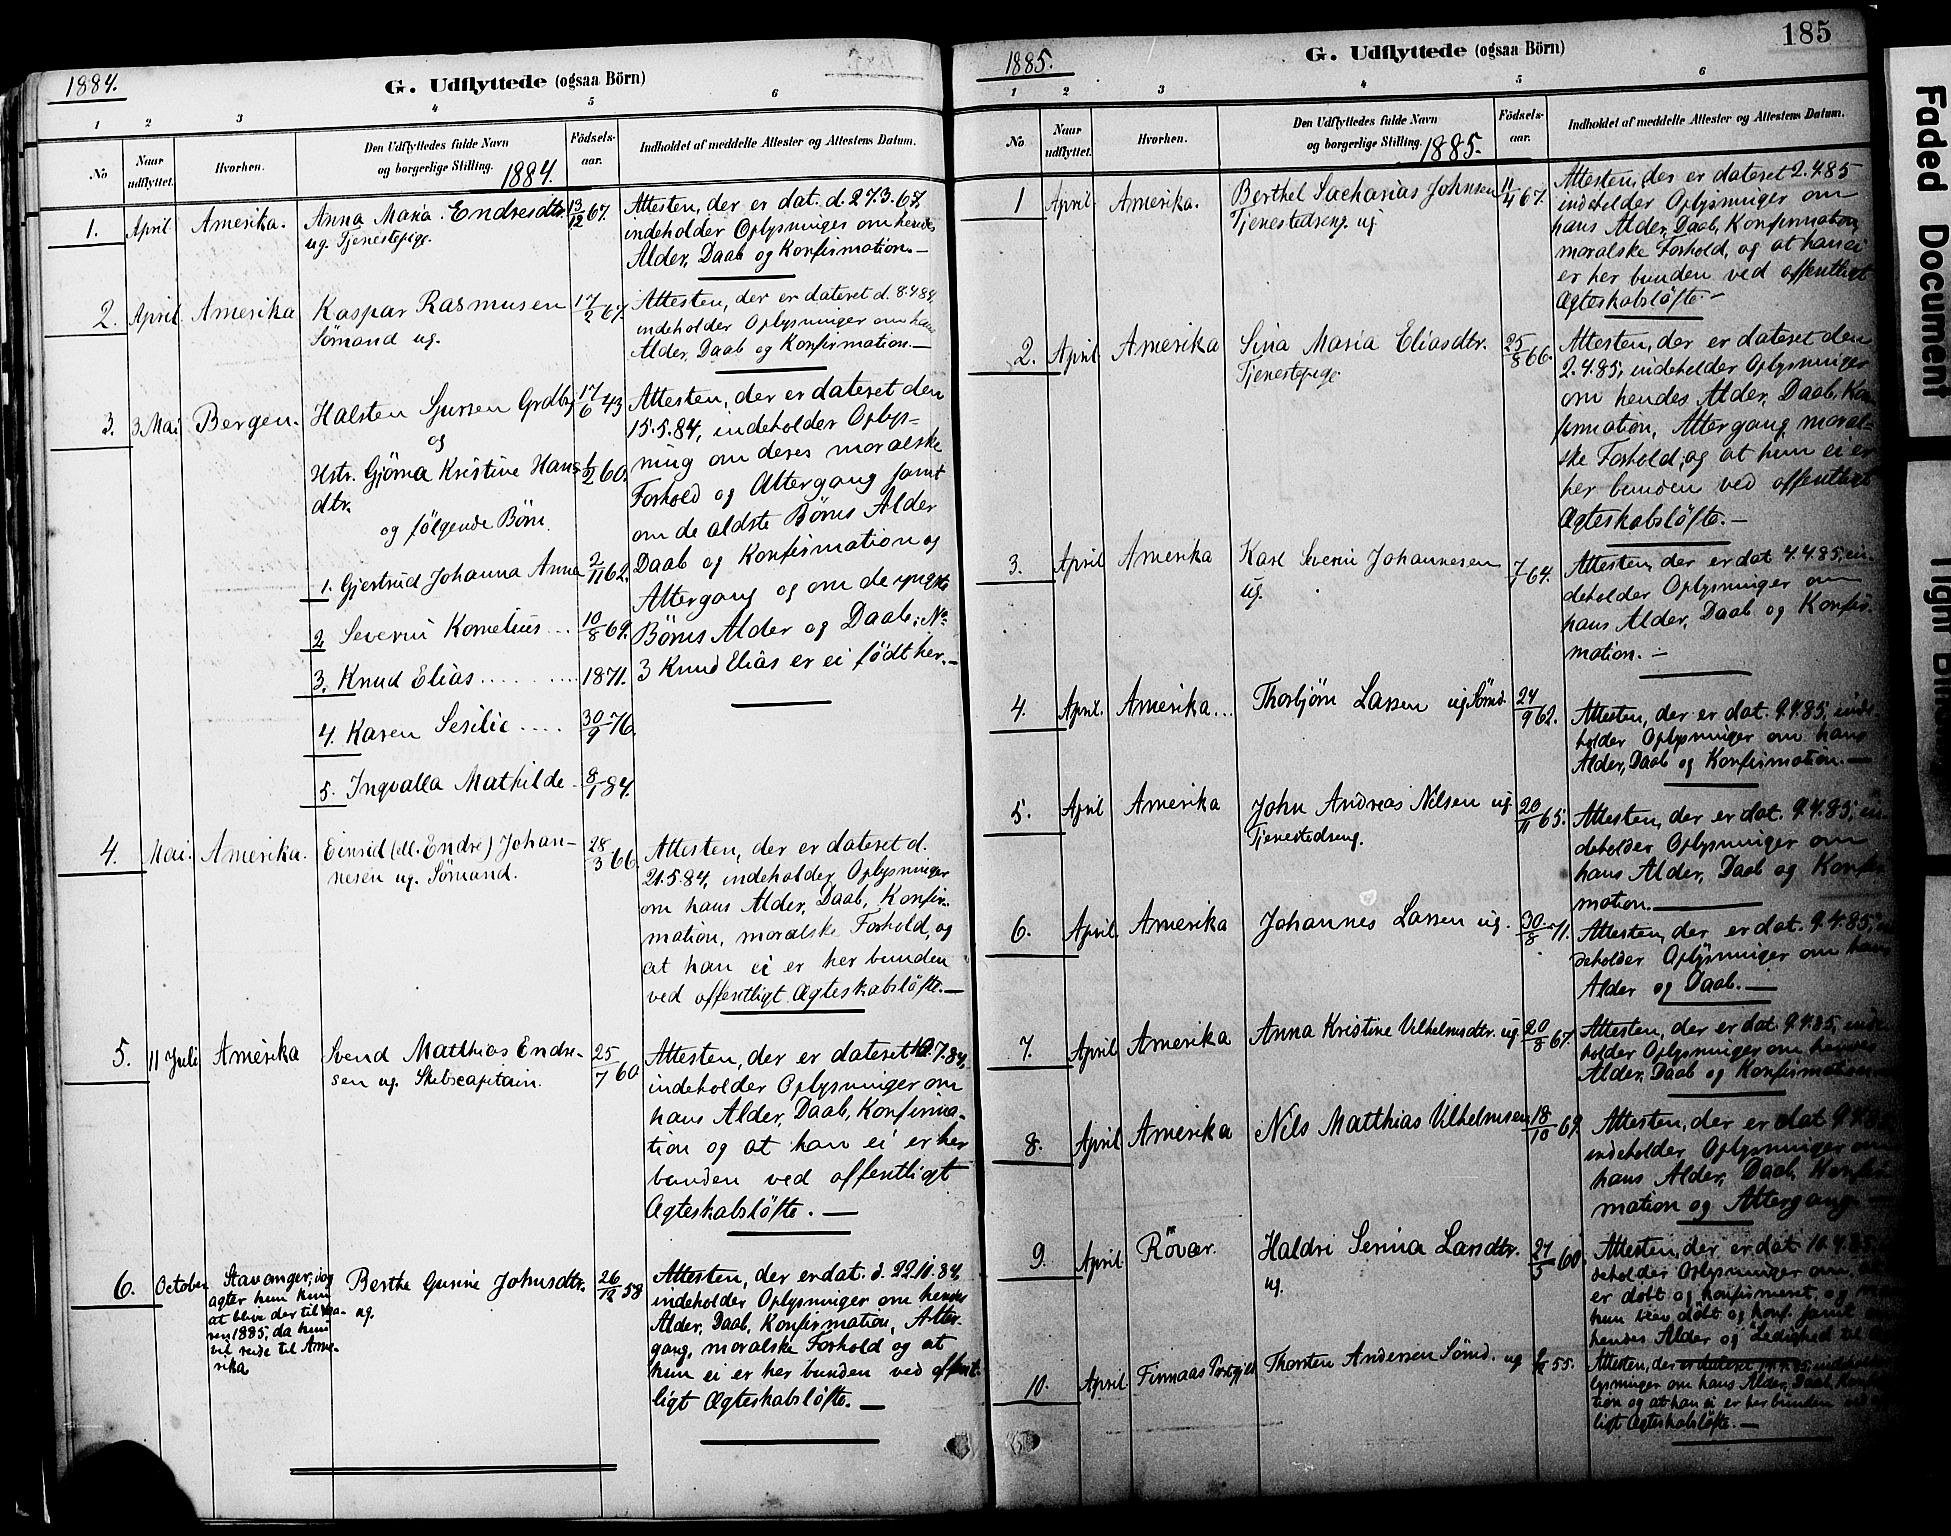 1884.
G. Udflyttede (ogsaa Börn)
1 2 3 4 5 6
No
Naar udflyttet.
Hvorhen.
Den Udflyttedes fulde Navn
og borgerlige Stilling.
Födsels-
aar.
Indholdet af meddelte Attester og Attestens Datum.
1884.
1. April Amerika. Anna Maria Endresdtr. 13/12 67.
ug. Tjenestepige.
Attesten, der er dat. d. 27.3.67,
indeholder Oplysninger om hendes
Alder, Daab og Konfirmation.—
2. April Amerika Kaspar Rasmusen 17/2 67.
Sømand ug.
Attesten, der er dateret d. 8.4.84,
indeholder Oplysninger om hans
Alder, Daab og Konfirmation.—
3. 3 Mai Bergen. Halsten Sjursen 17/6 43
og
Hstr. Gjørna Kristine Hans 1/2 60.
dtr.
og følgende Børn.
1. Gjertrud Johanna Anna 2/11 62.
2 Severin Kornelius... 10/8 69.
3. Knud Elias.......... 1871.
4. Karen Sesilie..... 30/9 76.
5. Ingvalla Mathilde 8/1 84.
Attesten, der er dateret den
15.5.84, indeholder Oplys-
ning om deres moralske
Forhold og Altergang samt
om de ældste Børns Alder
Daab og Konfirmation og
Altergang og om de yngste
Børns Alder og Daab; No
3 Knud Elias er ei født her.—
4. Mai. Amerika. Einrid (ell. Endre) Johan- 28/3 66.
nesen ug. Sømand.
Attesten, der er dateret d.
21.5.84, indeholder Oplysninger
om hans Alder, Daab, Konfir-
mation, moralske Forhold, og
at han ei er her bunden
ved offentligt Ægteskabsløfte.—
5. 11 Juli Amerika Svend Matthias Endre- 25/7 60
sen ug. Skibscaptain.
Attesten, der er dateret 10.7.84,
indeholder Oplysninger om
hans Alder, Daab, Konfirma-
tion og at han ei er her
bunden ved offentligt
Ægteskabsløfte.—
6. October Stavanger, dog
agter hun kun
at blive der til Vaa-
ren 1885, da hun
vil reise til Ame-
rika
Berthe Gurine Johnsdtr. 26/12 58
ug.
Attesten, der er dat. d. 22.10.84,
indeholder Oplysninger om hendes
Alder, Daab, Konfirmation, Alter-
gang, moralske Forhold og at
hun ei er her bunden ved offent-
ligt Ægteskabsløfte.—
185
1885.
G. Udflyttede (ogsaa Börn)
1 2 3 4 5 6
No
Naar udflyttet.
Hvorhen.
Den Udflyttedes fulde Navn
og borgerlige Stilling.
Födsels-
aar.
Indholdet af meddelte Attester og Attestens Datum.
1885.
1 April Amerika. Berthel Sacharias Johnsen 11/4 67.
Tjenestedreng. ug
Attesten, der er dateret 2.4.85
indeholder Oplysninger om
hans Alder, Daab, Konfirmation,
moralske Forhold, og at han ei
er her bunden ved offentligt
Ægteskabsløfte.—
2. April Amerika Sina Maria Eliasdtr. 25/8 66.
Tjenestepige
Attesten, der er dateret den
2.4.85, indeholder Oplysninger
om hendes Alder, Daab, Kon
firmation, Altergang, moral-
ske Forhold, og at hun ei er
her bunden ved offentligt
Ægteskabsløfte.—
3. April Amerika Karl Severin Johannesen 7 64.
ug.
Attesten, der er dat. 4.4.85, in-
deholder Oplysninger om
hans Alder, Daab og Konfir-
mation.—
4. April. Amerika... Thorbjørn Larsen ug Sømd. 24/9 62.
Attesten, der er dat. 9.4.85, inde-
holder Oplysninger om hans
Alder, Daab og Konfirmation.—
5. April Amerika John Andreas Nilsen ug 20/11 65.
Tjenestedreng.
Attesten, der er dat. 9.4.85, in-
deholder Oplysninger om
hans Alder, Daab og Konfir-
mation.—
6. April Amerika Johannes Larsen ug. 30/8 71.
Attesten, der er dat. 9.4.85, in
deholder Oplysninger om hans
Alder og Daab.—
7. April Amerika Anna Kristine Vilhelmsdtr. ug 20/8 67.
Attesten, der er dat. 9.4.85, inde
holder Oplysninger om hendes
Alder, Daab og Konfirmation.—
8. April Amerika Nils Matthias Vilhelmsen 18/10 69.
Attesten, der er dat 9.4.85
indeholder Oplysninger om
hans Alder, Daab, Konfir-
mation og Altergang.—
9. April Røvær. Haldri Serina Larsdtr. 27/5 60.
ug.
Attesten, der er dat. 10.4.85
deholder Oplysninger om,
er døbt og konfirmeret, og
hun blev døbt og konf. samt
hendes Alder og Ledighed til
10. April Finnaas Prstgjld Thorsten Andersen Sømd. ug 55.
Attesten, der er dateret 14.4.85,
lysninger om hans Alder, Daab, Konfirma
tion og at han ei er her bunden ved
ligt Ægteskabsløfte.—
Faded Document